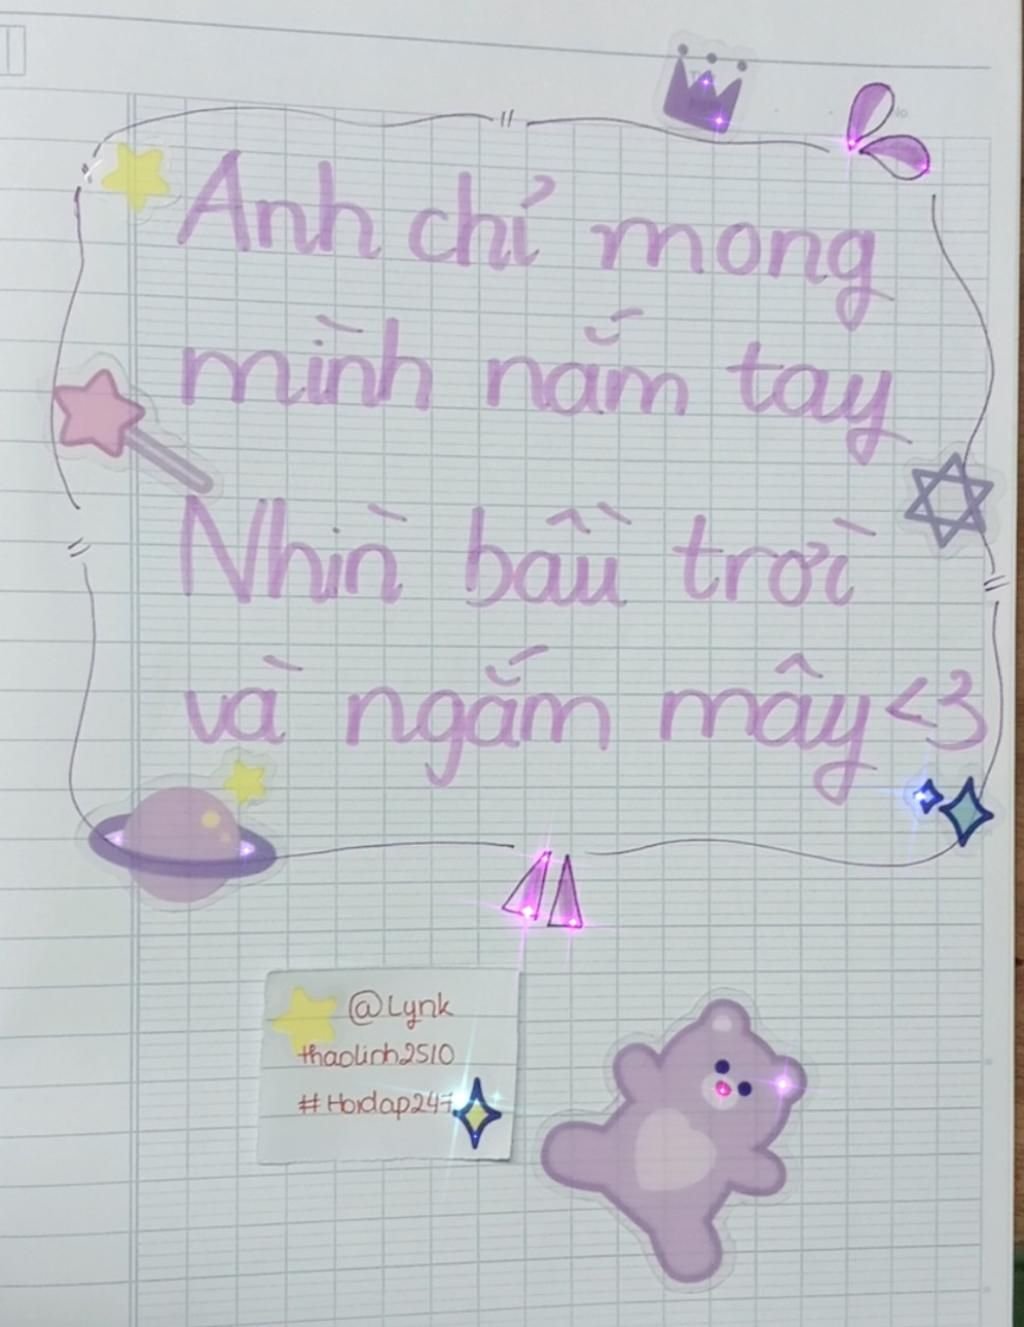 Anh chỉ mong
mình nắm tay
Nhìn bầu trời
và ngắm mây <3
@Lynk
thaolinh2510
#Hoidap247